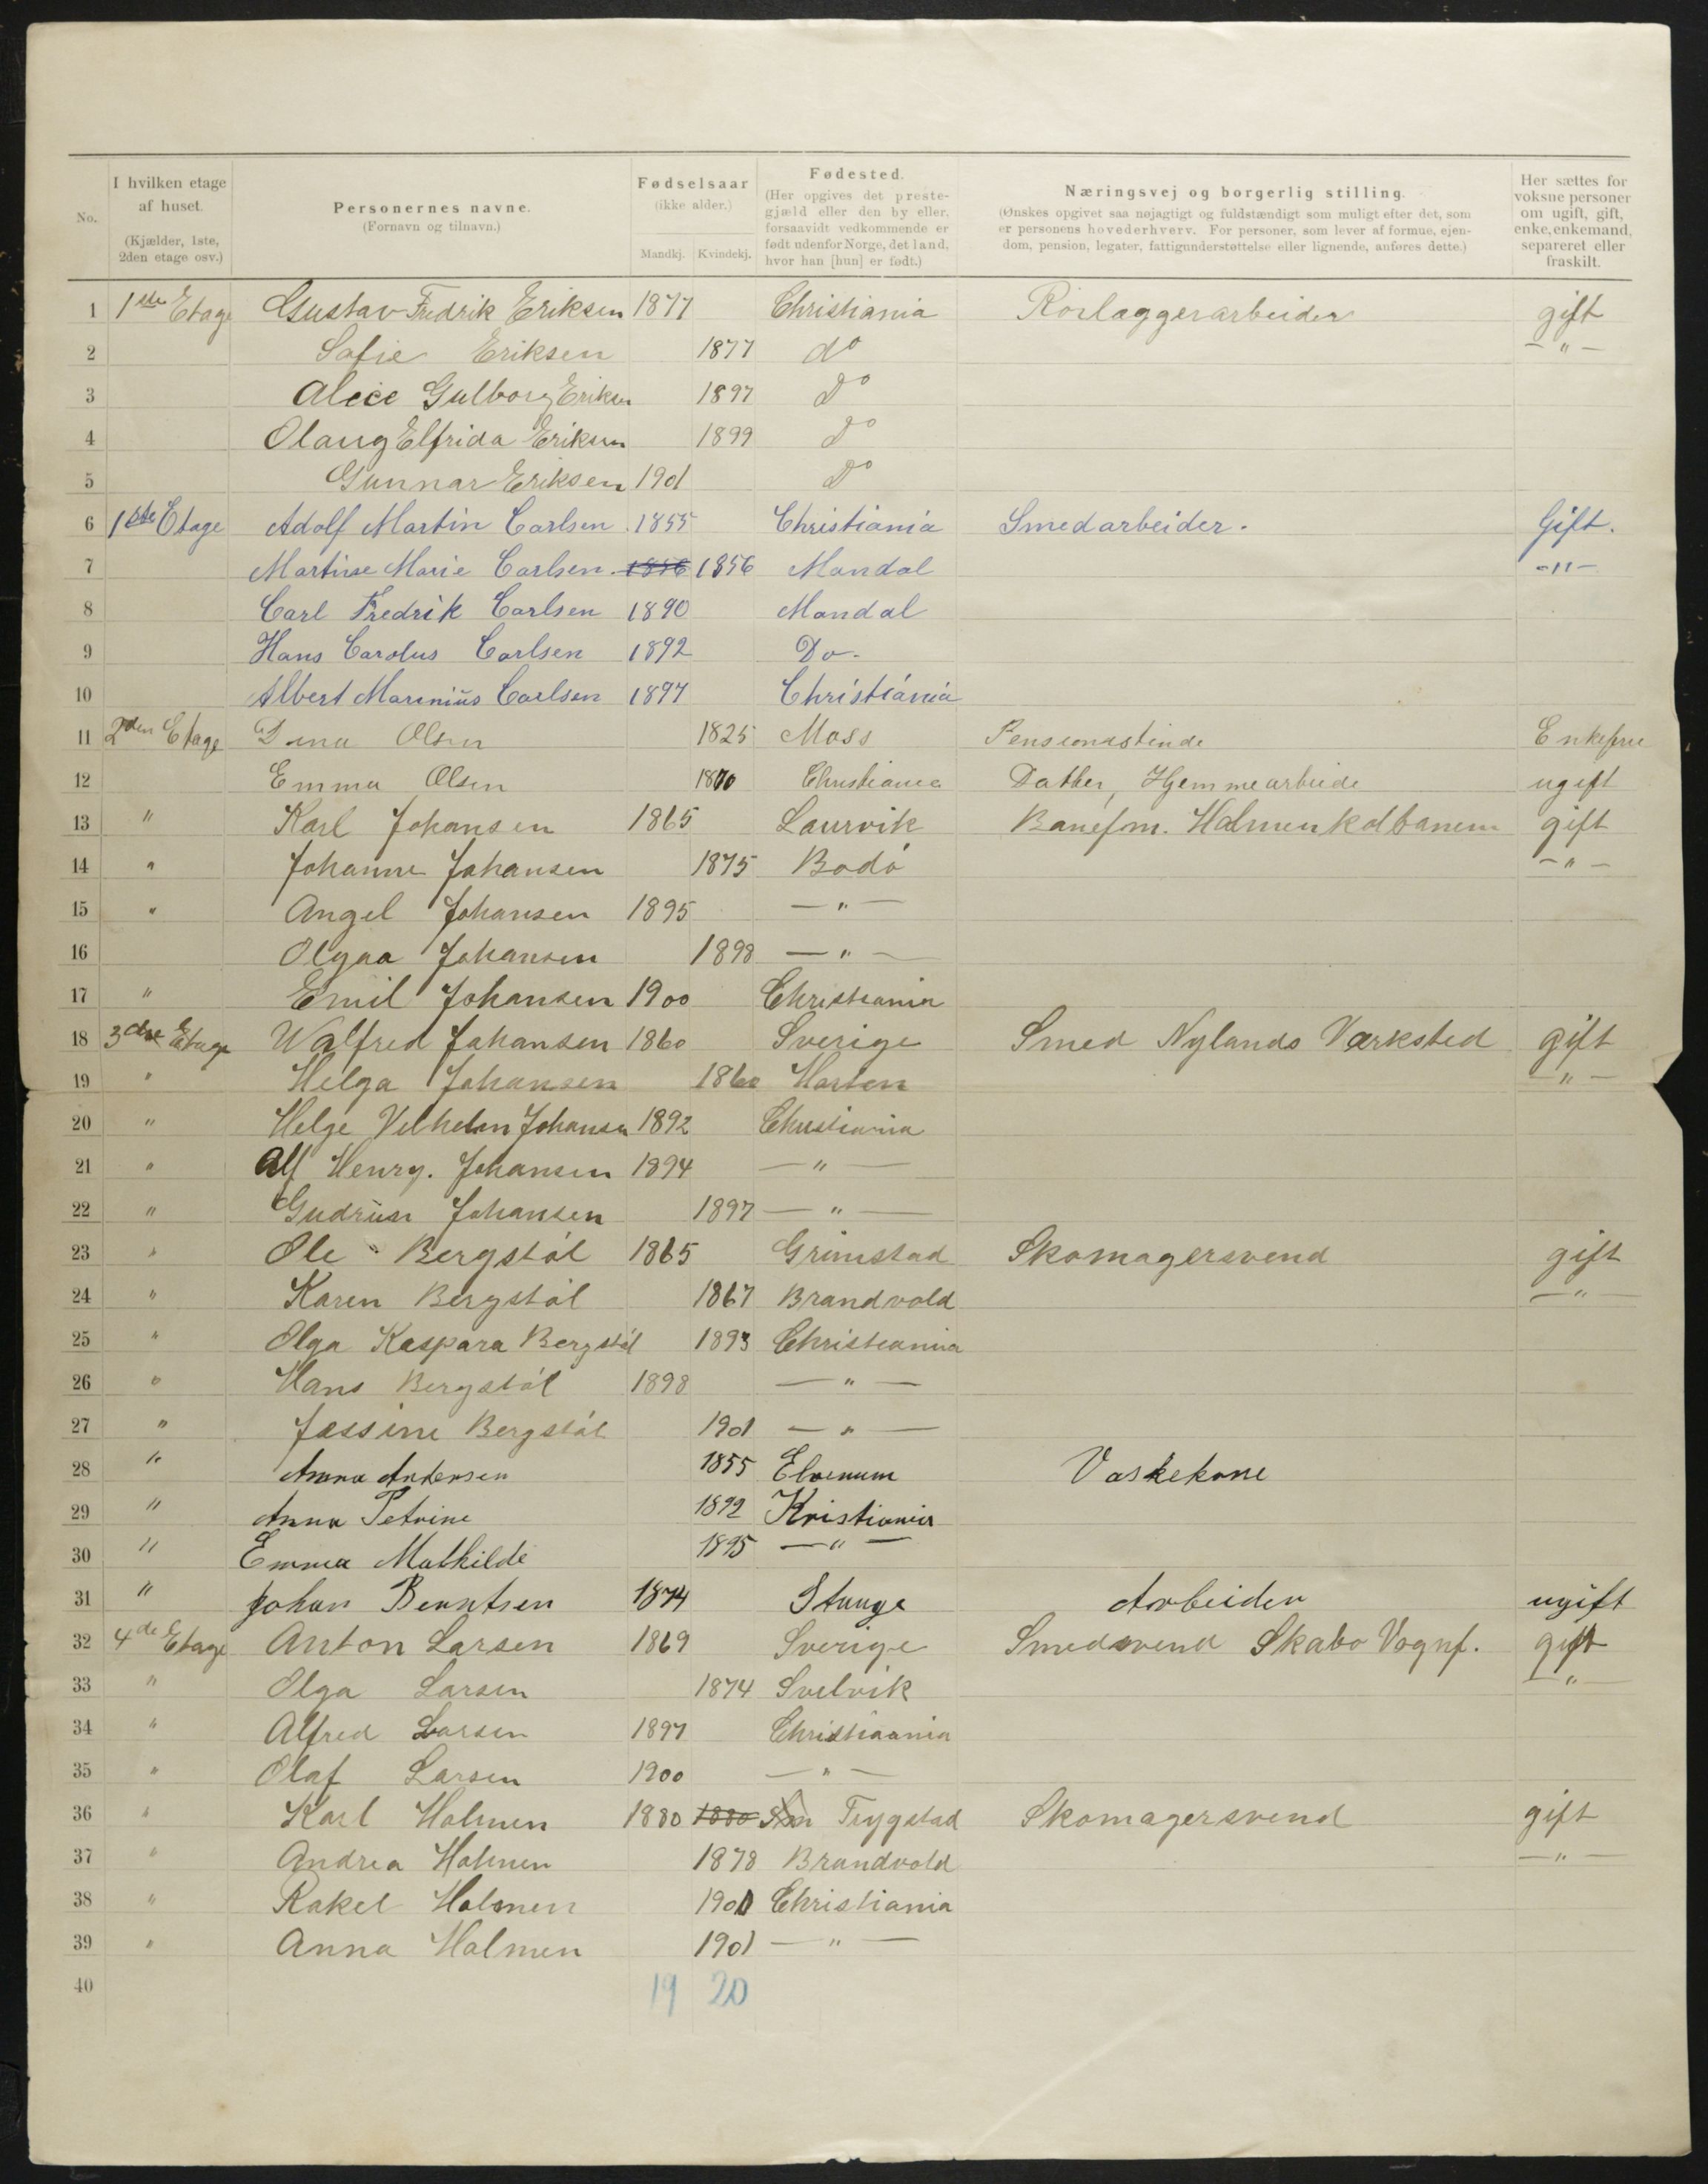 No.
I hvilken etage af huset. (Kjælder, 1ste, 2den etage osv.)
Personernes navne. (Fornavn og tilnavn.)
Fødselsaar (ikke alder.) Mandkj. Kvindekj.
Fødested. (Her opgives det prestegjæld eller den by eller, forsaavidt vedkommende er født udenfor Norge, det land, hvor han [hun] er født.)
Næringsvej og borgerlig stilling. (Ønskes opgivet saa nøjagtigt og fuldstændigt som muligt efter det, som er personens hovederhverv. For personer, som lever af formue, ejendom, pension, legater, fattigunderstøttelse eller lignende, anføres dette.)
Her sættes for voksne personer om ugift, gift, enke, enkemand, separeret eller fraskilt.
1 1ste Etage Gustav Fredrik Eriksen 1877 Christiania Rörlæggerarbeider gift
2 Sofie Eriksen 1877 do — " —
3 Alice Gulborg Eriksen 1897 Do
4 Olaug Elfrida Eriksen 1899 Do
5 Gunnar Eriksen 1901 Do
6 1ste Etage Adolf Martin Carlsen 1855 Christiania Smedarbeider. Gift.
7 Martine Marie Carlsen. 1856 1856 Mandal - " -
8 Carl Fredrik Carlsen 1890 Mandal
9 Hans Carolus Carlsen 1892 Do.
10 Albert Marinius Carlsen 1897 Christiania
11 2den Etage Dina Olsen 1825 Moss Enkefrue
12 Emma Olsen 1870 Christiania Datter, Hjemmearbeide ugift
13 " Karl Johansen 1865 Laurvik Banefm. Holmenkolbanem gift
14 " Johanne Johansen 1875 Bodö — " —
15 " Angel Johansen 1895 — " —
16 Olgaa Johansen 1898 — " —
17 " Emil Johansen 1900 Christiania
18 3die Etage Walfred Johansen 1860 Sverige Smed Nylands Værksted gift
19 " Helga Johansen 1860 Horten — " —
20 " Helge Vilhelm Johansen 1892 Christiania
21 " Alf Henry. Johansen 1894 — " —
22 " Gudrun Johansen 1897 — " —
23 " Ole Bergstöl 1865 Grimstad Skomagersvend gift
24 " Karen Bergstöl 1867 Brandvold — " —
25 " Olga Kaspara Bergstöl 1893 Christiania
26 " Hans Bergstöl 1898 — " —
27 " Jossine Bergstöl 1901 — " —
28 " Anna Andersen 1855 Elverum Vaskekone
29 " Anna Petrine 1892 Kristiania
30 " Emma Mathilde 1895 — " —
31 " Johan Berntsen 1874 Stange Arbeider ugift
32 4de Etage Anton Larsen 1869 Sverige Smedsvend Skabo Vognf. gift
33 " Olga Larsen 1874 Svelvik — " —
34 " Alfred Larsen 1897 Christiaania
35 " Olaf Larsen 1900 — " —
36 " Karl Holmen 1880 1880 Trygstad Skomagersvend gift
37 " Andrea Holmen 1878 Brandvold — " —
38 " Rakel Holmen 1900 Christiania
39 " Anna Holmen 1901 — " —
40 19 20